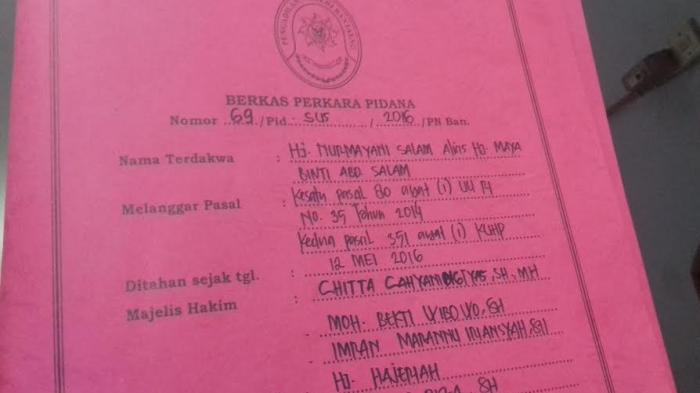 BERKAS PERKARA PIDANA
Nomor 69 /Pid. SUS / 2016 /PN Ban.
Nama Terdakwa : Hj. NURMAYANI SALAM Alias Hj. MAYA
BINTI ABD SALAM
Melanggar Pasal : Kesatu pasal 80 ayat (1) UU RI
No. 35 Tahun 2014
Kedua pasal 351 ayat (1) KUHP
Ditahan sejak tgl. : 12 MEI 2016
Majelis Hakim : CHITTA CAHYANINGTYAS, SH, MH
- MOH. BEKTI WIBOWO, SH
- IMRAN MARANNU IRIANSYAH, SH
Hj. HAJERIAH
SH